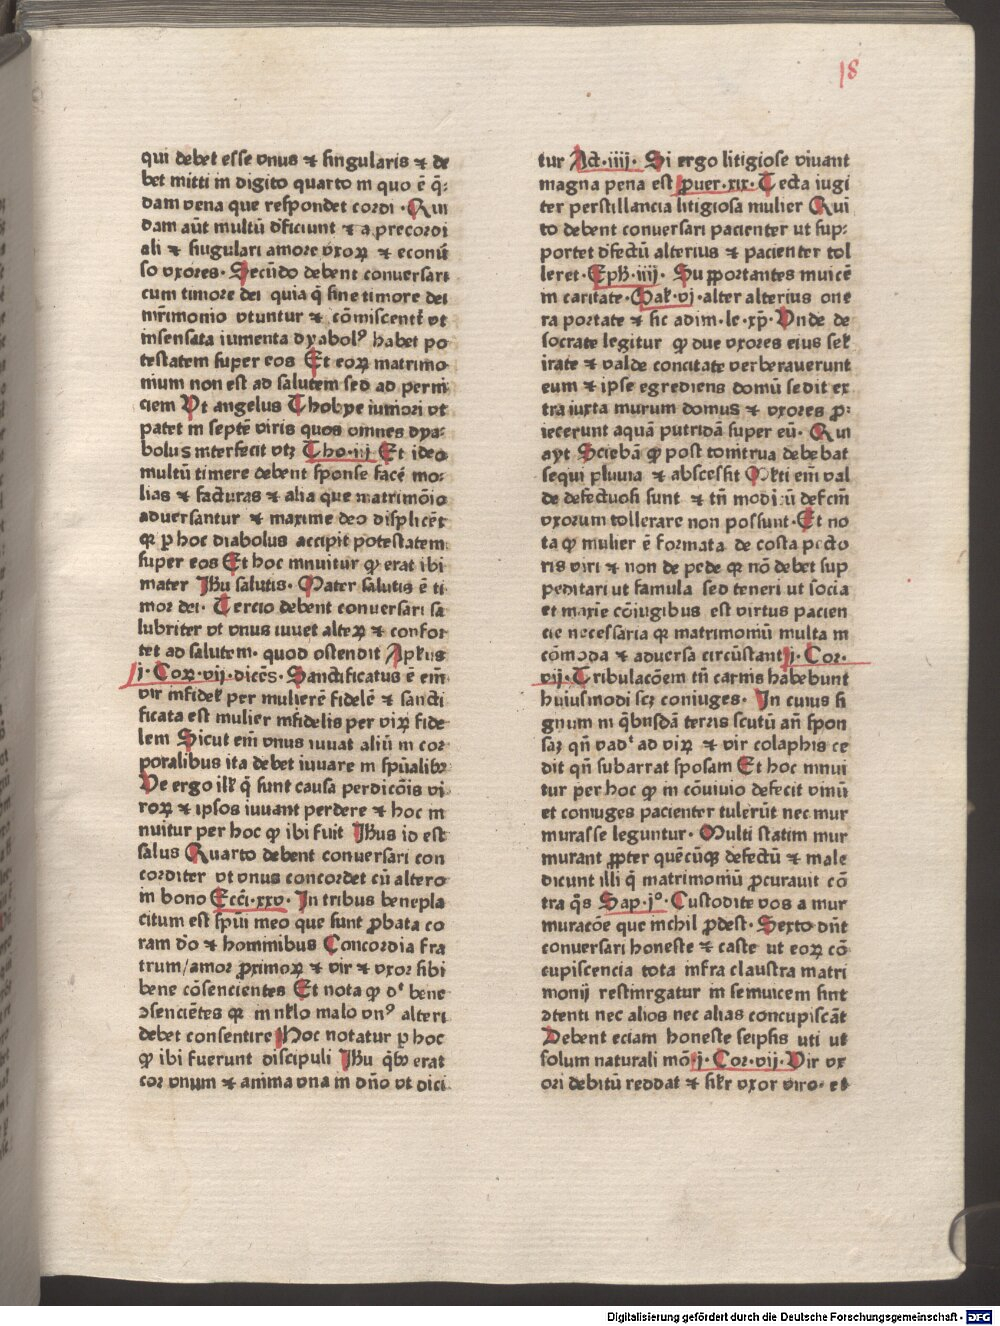 18
qui debet esse vnus ⁊ singularis ⁊ de
bet mitti in digito quarto in quo ē q̄:
dam vena que respondet cordi · Qui
dam aūt multū dēficiunt ⁊ a precordi
ali ⁊ singulari amore vxoꝝ ⁊ econū
so vxores · Secūdo debent conuersari
cum timore dei quia q̄ sine timore dei
mr̄imonio vtuntur ⁊ cōmiscent̄ vt
insensata iumenta dyabolꝰ habet po
testatem super eos Et eoꝝ matrimo
nium non est ad salutem sed ad perni
ciem Vt angelus Thobye iuniori vt
patet in septē viris quos omnes dya:
bolus interfecit vtꝫ Tho·iij Et ideo
multū timere debent sponse facē mo:
lias ⁊ facturas ⁊ alia que matrimōio
aduersantur ⁊ maxime deo displicēt
qꝛ ꝑ hoc diabolus accipit potestatem
super eos Et hoc innuitur ꝙ erat ibi
mater Jhū salutis · Mater salutis ē ti
mor dei · Tercio debent conuersari sa
lubriter vt vnus iuuet alteꝝ ⁊ confor
tet ad salutem · quod ostendit Apłus
j·Coꝝ·vij·dicēs· Sanctificatus ē em̄
vir infidel' per mulierē fidelē ⁊ sancti
ficata est mulier infidelis per viꝝ fide
lem Sicut em̄ vnus iuuat aliū in cor
poralibus ita debet iuuare in spūalibꝫ
Ve ergo ill' q̄ sunt causa perdicōis vi
roꝝ ⁊ ipsos iuuant perdere ⁊ hoc in
nuitur per hoc ꝙ ibi fuit Jhūs id est
salus Quarto debent conuersari con
corditer vt vnus concordet cū altero
in bono Ecci·xxv· In tribus benepla
citum est spūi meo que sunt ꝓbata co
ram dō ⁊ hominibus Concordia fra
trum/amor ꝓximoꝝ ⁊ vir ⁊ vxor sibi
bene cōsencientes Et nota ꝙ dꝰ bene
ↄsenciētes qꝛ in nllo malo vnꝰ alteri
debet consentire Hoc notatur ꝑ hoc
ꝙ ibi fuerunt discipuli Jhū qbꝫ erat
cor vnum ⁊ anima vna in dño vt dici
tur Act·iiij· Si ergo litigiose viuant
magna pena est ꝓuer·xix· Tecta iugi
ter perstillancia litigiosa mulier Qui
to debent conuersari pacienter ut sup:
portet dēfectū alterius ⁊ pacienter tol
leret · Eph·iiij· Supportantes inuicē
in caritate · Gal·vj·alter alterius one
ra portate ⁊ sic adim·le·xp̄· Vnde de
socrate legitur ꝙ due vxores eius sel'
irate ⁊ valde concitate verberauerunt
eum ⁊ ipse egrediens domū sedit ex
tra iuxta murum domus ⁊ vxores ꝓ:
iecerunt aquā putridā super eū · Qui
ayt Sciebā ꝙ post tonitrua debebat
sequi pluuia ⁊ abscessit Ml'ti em̄ val
de defectuosi sunt ⁊ tn̄ modicū defcm̄
vxorum tollerare non possunt · Et no
ta ꝙ mulier ē formata de costa pecto
ris viri ⁊ non de pede qꝛ nō debet sup
peditari ut famula sed teneri ut socia
et maxīe cōiugibus est virtus pacien
cie necessaria qꝛ matrimoniū multa in
cōmoda ⁊ aduersa circūstant j·Cor·
vij·Tribulacōem tn̄ carnis habebunt
huiusmodi scꝫ coniuges · In cuius si
gnum in qbusdā terris scutū an̄ spon
saꝫ qn̄ vadꝰ ad viꝝ ⁊ vir colaphis ce
dit qn̄ subarrat sposam Et hoc innui
tur per hoc ꝙ in cōuiuio defecit vinū
et coniuges pacienter tulerūt nec mur
murasse leguntur · Multi statim mur
murant ꝓpter quēcūqꝫ defectū ⁊ male
dicunt illi q̄ matrimoniū ꝓcurauit cō
tra q̄s Sap·jº·Custodite vos a mur
muracōe que inchil ꝓdest · Sexto dn̄t
conuersari honeste ⁊ caste ut eoꝝ cō
cupiscencia tota infra claustra matri
monij restringatur in semuicem sint
ↄtenti nec alios nec alias concupiscāt
Debent eciam honeste seipsis uti ut
solum naturali mō·j·Cor·vij·Vir vx
ori debitū reddat ⁊ sil'r vxor viro· et
Digitalisierung gefördert durch die Deutsche Forschungsgemeinschaft - DFG